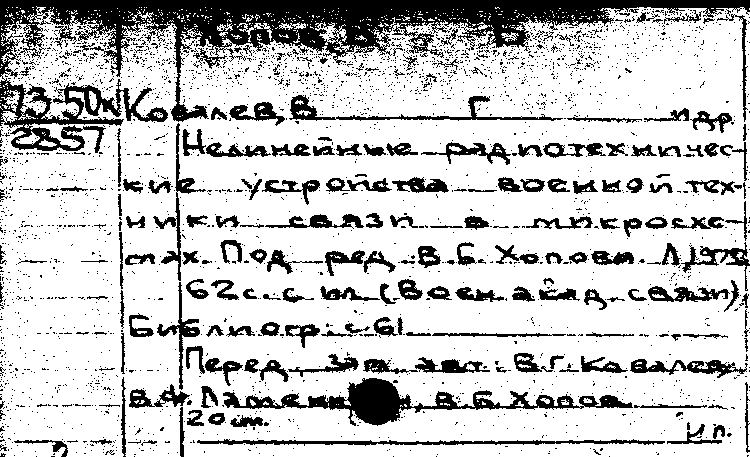 Хопов, В Б
73-50к Ковалев, В Г и др
2857
Нелинейные радиотехничес-
кие устройства военной тех-
ники связи в микросхе-
мах. Под ред. В.Б. Хопова. Л, 1972
62 с. с ил (Воен. акад. связи),
Библиогр: с 61
Перед. заг. авт.: В.Г. Ковалев,
В.Ф. В.Б. Хопов
20 см.